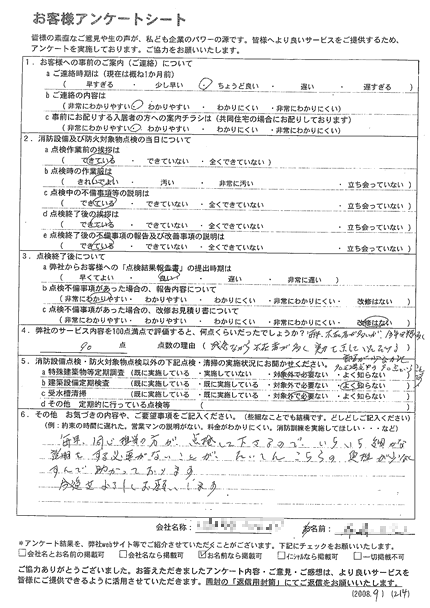 お客様アンケートシート
皆様の素直なご意見や生の声が、私ども企業のパワーの源です。皆様へより良いサービスをご提供するため、
アンケートを実施しております。ご協力をお願いいたします。
1．お客様への事前のご案内（ご連絡）について
a ご連絡時期は（現在は概ね1か月前）
（ 早すぎる ・ 少し早い ・ ちょうど良い ・ 遅い ・ 遅すぎる ）
b ご連絡の内容は
（非常にわかりやすい ・ わかりやすい ・ わかりにくい ・ 非常にわかりにくい）
c 事前にお配りする入居者の方への案内チラシは（共同住宅の場合にお配りしております）
（非常にわかりやすい ・ わかりやすい ・ わかりにくい ・ 非常にわかりにくい）
2．消防設備及び防火対象物点検の当日について
a 点検作業前の挨拶は
（ できている ・ できていない ・ 全くできていない ）
b 点検時の作業服は
（ きれいでよい ・ 汚い ・ 非常に汚い ・ 立ち会っていない ）
c 点検中の不備事項等の説明は
（ できている ・ できていない ・ 全くできていない ・ 立ち会っていない ）
d 点検終了後の挨拶は
（ できている ・ できていない ・ 全くできていない ・ 立ち会っていない ）
e 点検終了後の不備事項の報告及び改善事項の説明は
（ できている ・ できていない ・ 全くできていない ・ 立ち会っていない ）
3．点検終了後について
a 弊社からお客様への「点検結果報告書」の提出時期は
（ 早くてよい ・ 良い ・ 遅い ・ 非常に遅い ）
b 点検不備事項があった場合の、報告内容について
（非常にわかりやすい ・ わかりやすい ・ わかりにくい ・ 非常にわかりにくい ・ 改修はない）
c 点検不備事項があった場合の、改修お見積り書について
（非常にわかりやすい ・ わかりやすい ・ わかりにくい ・ 非常にわかりにくい ・ 改修はない）
4．弊社のサービス内容を100点満点で評価すると、何点くらいだったでしょうか？
90 点 点数の理由（
5．消防設備点検・防火対象物点検以外の下記点検・清掃の実施状況にお聞かせください。
a 特殊建築物等定期調査 （既に実施している ・ 実施していない ・ 対象外で必要ない ・ よく知らない ）
b 建築設備定期検査 （既に実施している ・ 実施していない ・ 対象外で必要ない ・ よく知らない ）
c 受水槽清掃 （既に実施している ・ 実施していない ・ 対象外で必要ない ・ よく知らない ）
d その他 定期的に行っている点検等 （ ）
6．その他 お気づきの内容や、ご要望事項をご記入ください。（些細なことでも結構です。どしどしご記入ください）
（例：約束の時間に遅れた、営業マンの説明がない、料金がわかりにくい、消防訓練を実施してほしい・・・など）
毎年、同じ担当の方が点検して下さるので、いちいち細かな
説明をする必要がないことが、たいへんこちらの負担が少なく
すんで助かっております。
今後ともよろしくお願いします。
会社名称： お名前：
*アンケート結果を、弊社webサイト等でご紹介させていただくことがございます。下記にチェックをお願いいたします。
□会社名とお名前の掲載可 □会社名なら掲載可 □お名前なら掲載可 □イニシャルなら掲載可 □一切掲載不可
ご協力ありがとうございました。お答えいただきましたアンケート内容・ご意見・ご感想は、より良いサービスを
皆様にご提供できるように活用させていただきます。同封の「返信用封筒」にてご返信をお願いいたします。
(2008. 9.1